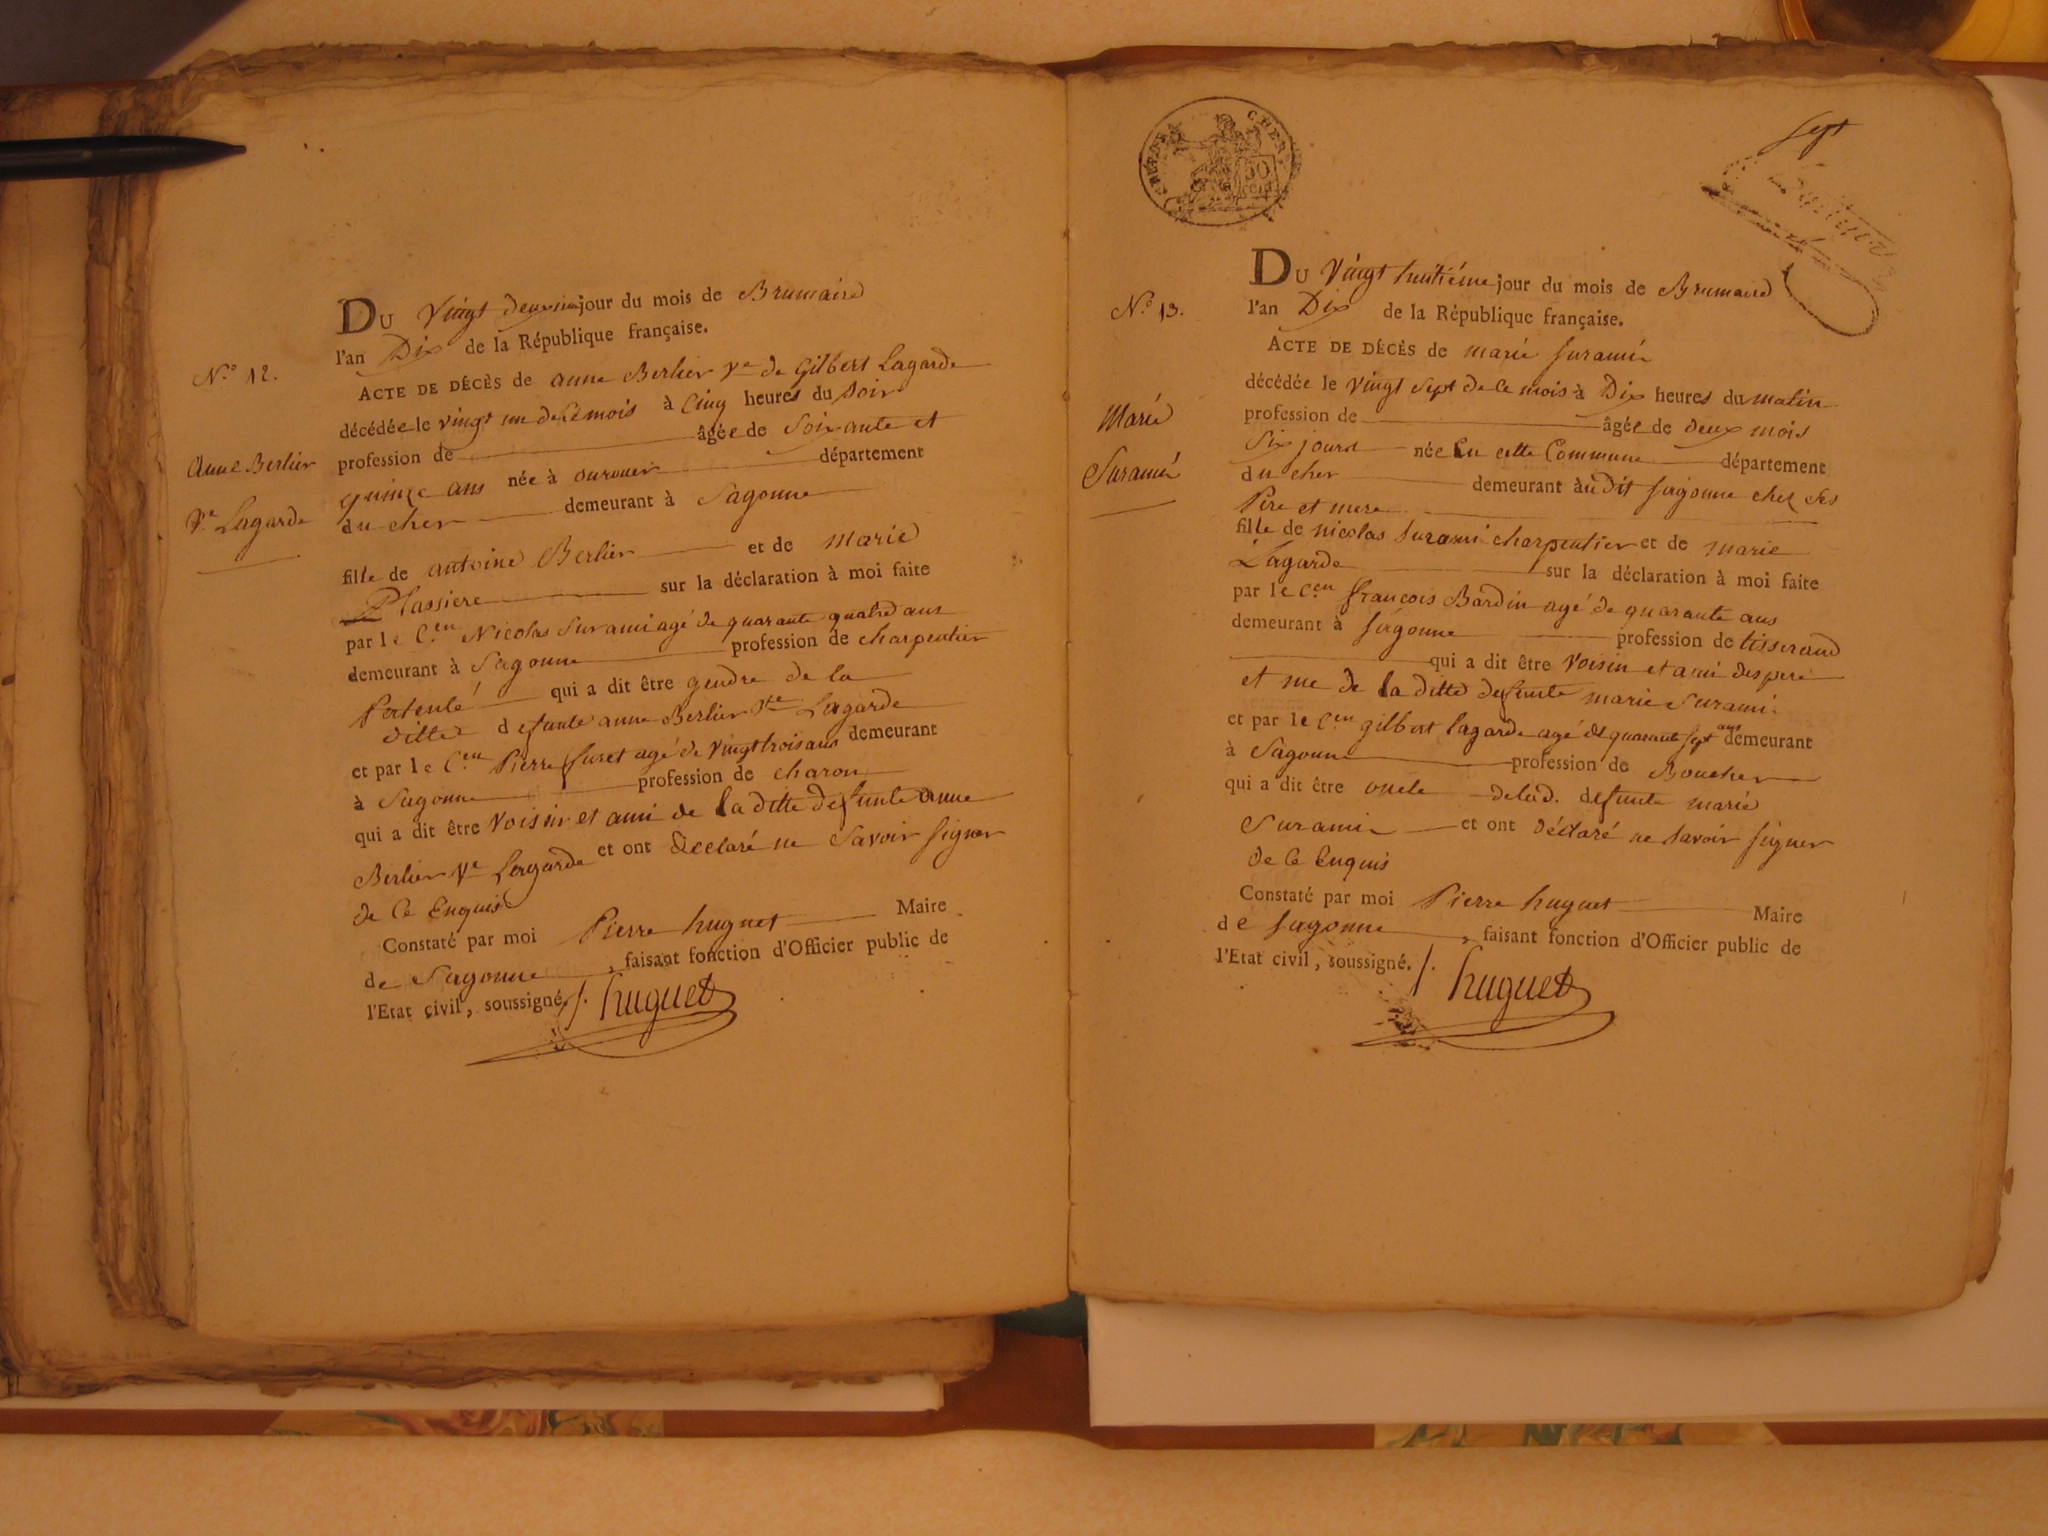 N.º 12.
Anne Berlier
Vᵉ Lagarde
DU Vingt deuxiem jour du mois de Brumaire
l'an Dix de la République française.
ACTE DE DÉCÈS de anne Berlier Vᵉ de Gilbert Lagarde
décédée le vingt un de ce mois à Cinq heures du Soir
profession de âgée de Soixante et
quinze ans née à ourouer département
du cher demeurant à Sagonne
fille de antoine Berlier et de marie
Plassiere sur la déclaration à moi faite
par le C.en Nicolas Surami agé de quarante quatre ans
demeurant à Sagonne profession de charpentier
Patenté qui a dit être gendre de la
ditte defunte anne Berlier Vve Lagarde
et par le C.en Pierre furet agé de vingt trois ans demeurant
à Sagonne profession de charon
qui a dit être Voisin et ami de la ditte defunte anne
Berlier Vᵉ Lagarde et ont déclaré ne Savoir signer
de Ce Enquis
Constaté par moi Pierre huguet Maire
de Sagonne, faisant fonction d'Officier public de
l'Etat civil, soussigné. huguet
CHER
50
Sept
N.º 13.
Marie
Suramin
DU Vingt huitiéme jour du mois de Brumaire
l'an Dix de la République française.
ACTE DE DÉCÈS de marie suramin
décédée le vingt sept de ce mois à Dix heures du matin
profession de âgée de deux mois
Six jours née En cette Commune département
du cher demeurant àudit sagonne chez ses
Pere et mere
fille de nicolas Surami charpentier et de marie
Lagarde sur la déclaration à moi faite
par le C.en francois Bardin agé de quarante ans
demeurant à sagonne profession de tisserand
qui a dit être Voisin et ami des pere
et me de la ditte defunte marie Surami
et par le C.en gilbert lagarde agé de quarante sept ans demeurant
à Sagonne profession de Boucher
qui a dit être oncle de lad. defunte marie
Surami et ont déclaré ne savoir signer
de Ce Enquis
Constaté par moi Pierre huguet Maire
de sagonne, faisant fonction d'Officier public de
l'Etat civil, soussigné. huguet